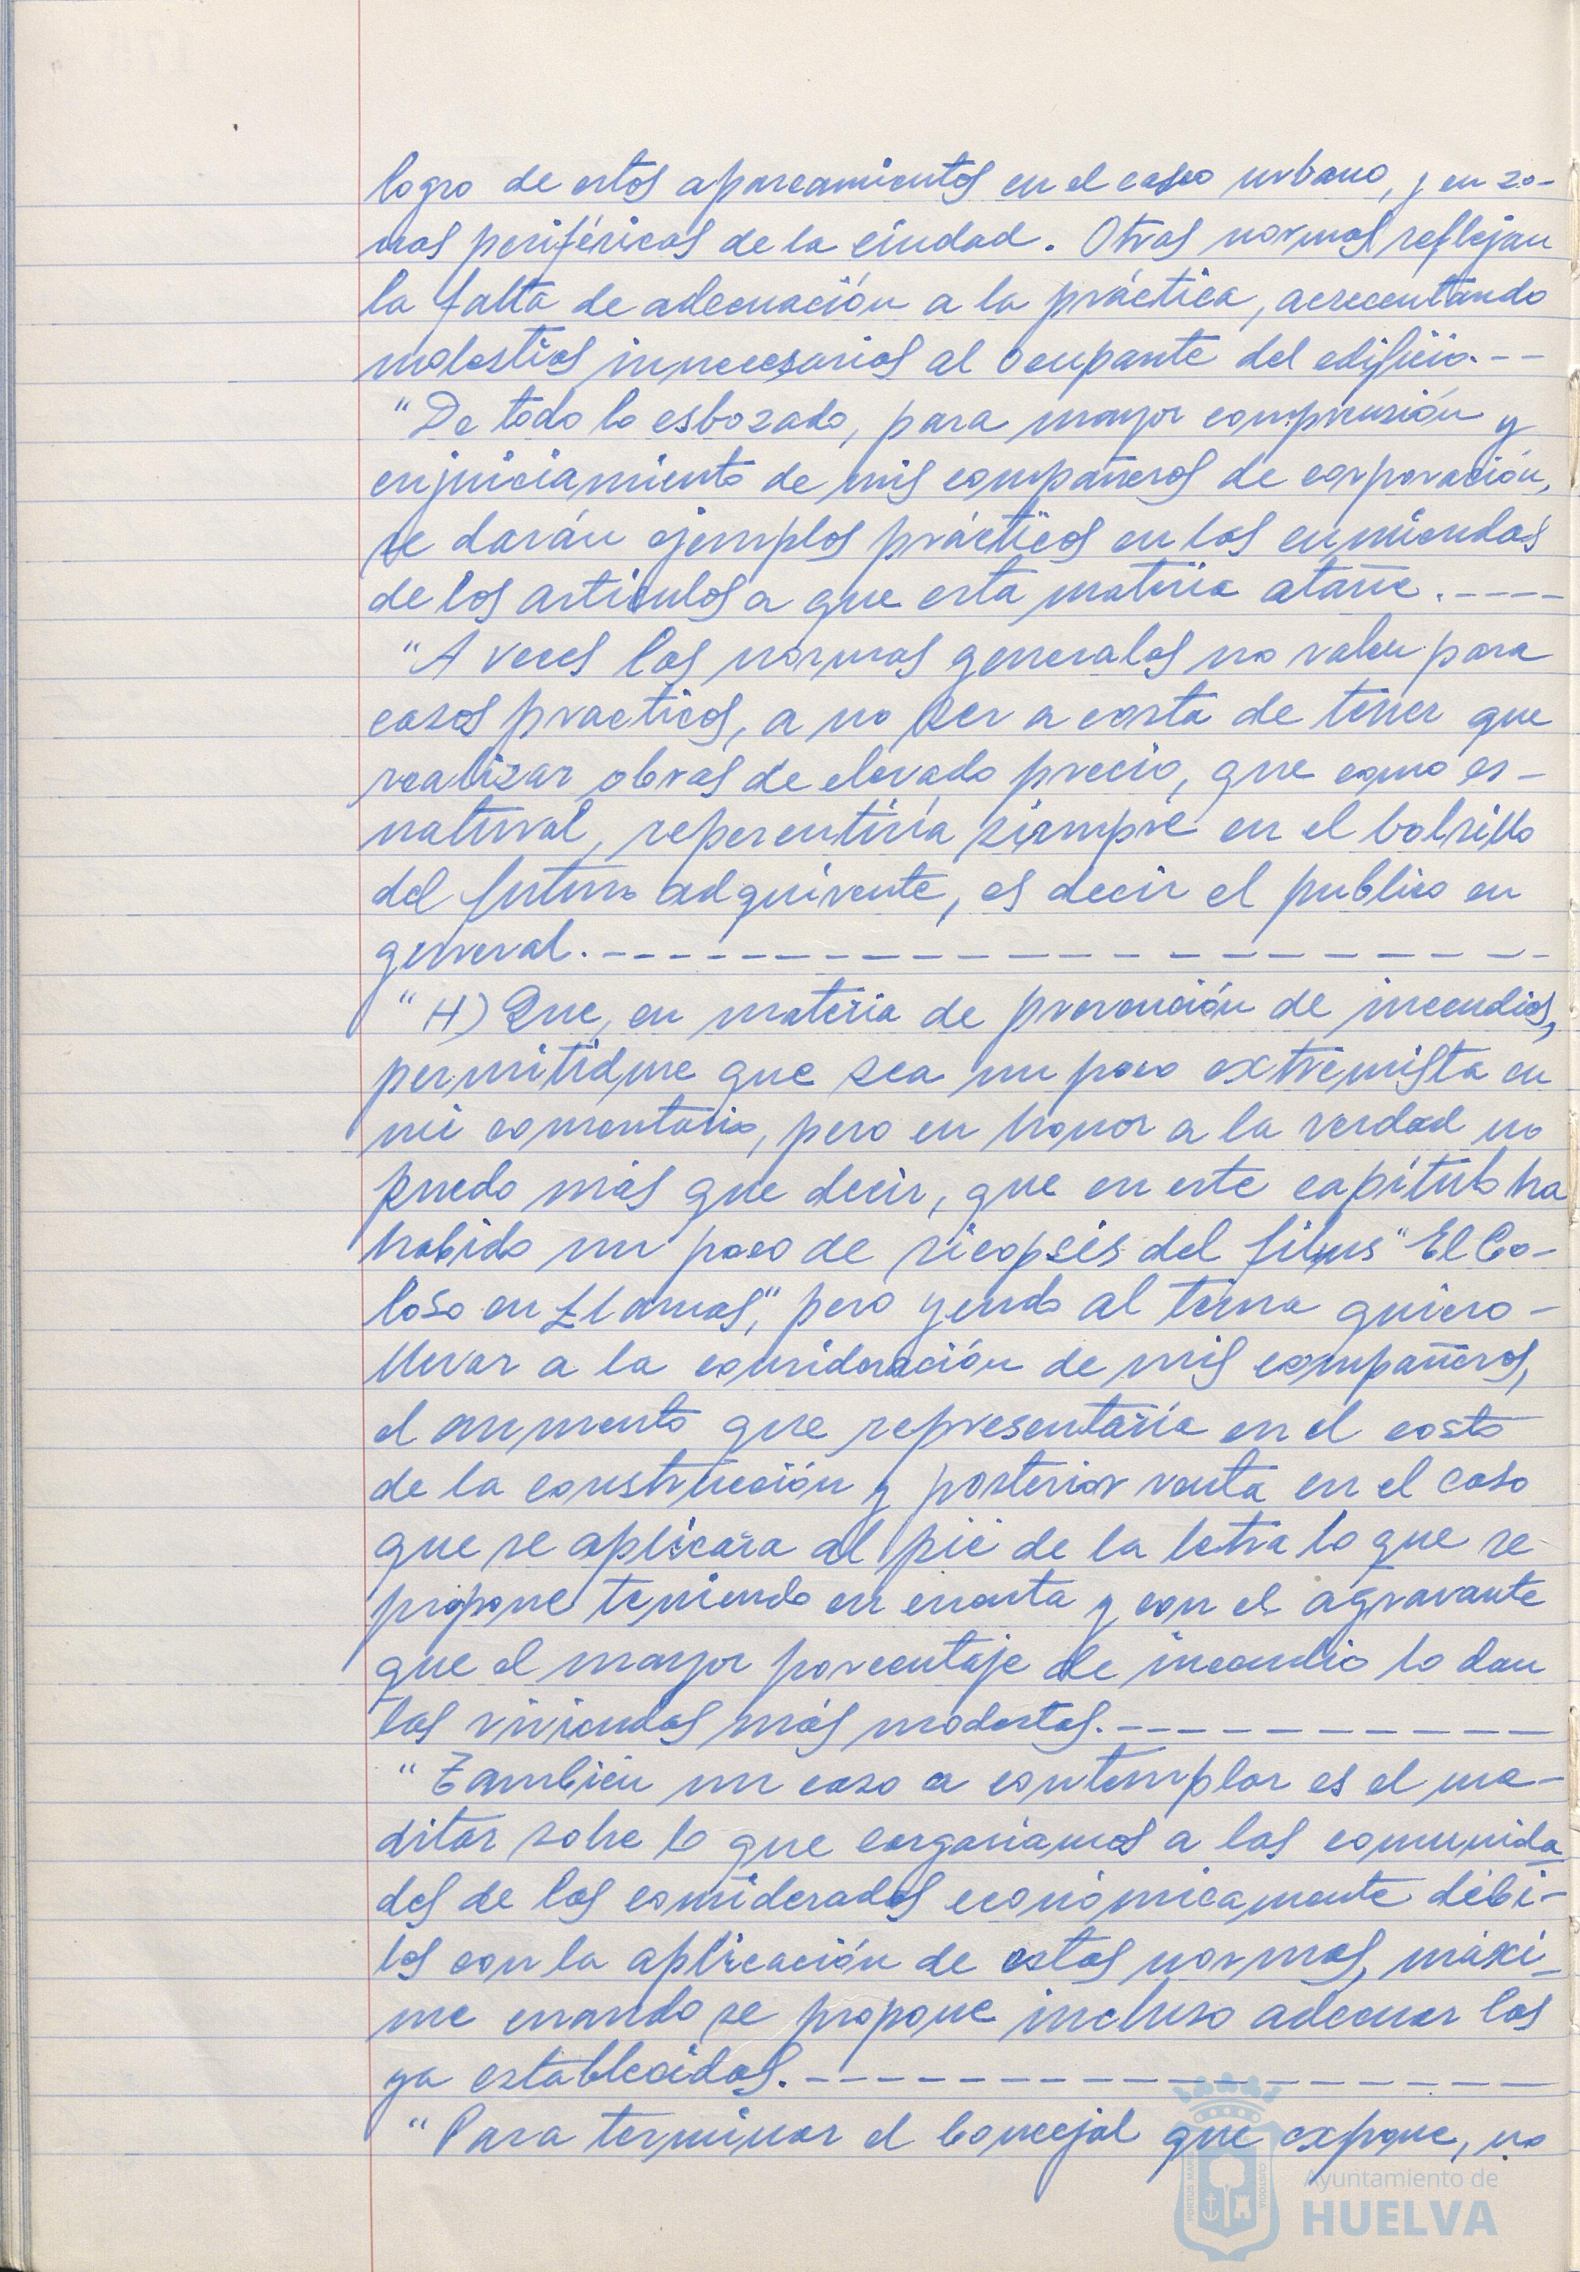 logro de estos aparcamientos en el casco urbano, y en zo-
nas periféricas de la ciudad. Otras normas reflejan
la falta de adecuación a la práctica, acrecentando
molestias innecesarias al ocupante del edificio.--
"De todo lo esbozado, para mayor comprensión y
enjuiciamiento de mis compañeros de corporación,
se darán ejemplos prácticos en las enmiendas
de los artículos a que esta materia atañe.----
"A veces las normas generales no valen para
casos practicos, a no ser a costa de tener que
realizar obras de elevado precio, que como es-
natural, repercutiría siempre en el bolsillo
del futuro adquirente, es decir el publico en
general.-----------------------
"H) Que, en materia de prevención de incendios,
permitidme que sea un poco extremista en
mi comentario, pero en honor a la verdad no
puedo más que decir, que en este capítulo ha
habido un poco de sicopsis del films "El Co-
loso en Llamas", pero yendo al tema quiero-
llevar a la consideración de mis compañeros,
el aumento que representaría en el costo
de la construcción y posterior venta en el caso
que se aplicara al pié de la letra lo que se
propone teniendo en cuenta y con el agravante
que el mayor porcentaje de incendio lo dan
las viviendas más modestas.-----------
"También un caso a contemplar es el me-
ditar sobre lo que cargariamos a las comunida
des de los considerados económicamente débi-
les con la aplicación de estas normas, máxi-
me cuando se propone incluso adecuar las
ya establecidas.------------------
"Para terminar el Concejal que expone, no
PORTUS MARIS
CUSTODIA
Ayuntamiento de
HUELVA